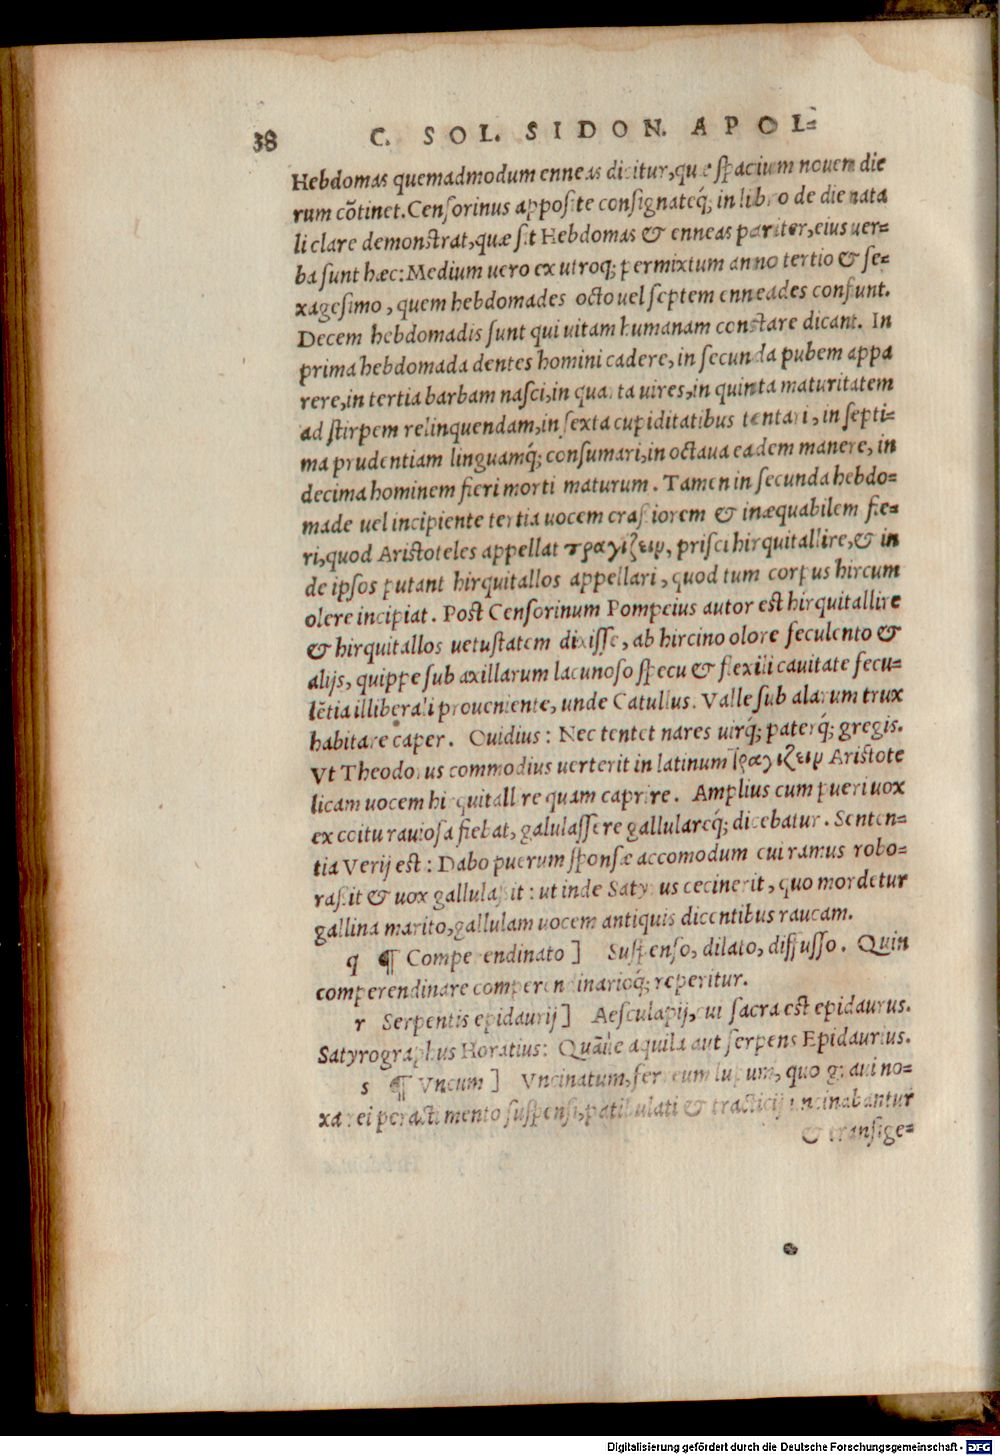 38 C. SOL. SIDON. APOL=
Hebdomas quemadmodum enneas dicitur, quæ spacium nouem die
rum cõtinet. Censorinus apposite consignateq́; in libro de die nata
li clare demonstrat, quæ sit Hebdomas & enneas pariter, eius uer=
ba sunt hæc: Medium uero ex utroq; permixtum anno tertio & se=
xagesimo, quem hebdomades octo uel septem enneades confiunt.
Decem hebdomadis sunt qui uitam humanam constare dicant. In
prima hebdomada dentes homini cadere, in secunda pubem appa
rere, in tertia barbam nasci, in quarta uires, in quinta maturitatem
ad stirpem relinquendam, in sexta cupiditatibus tentari, in septi=
ma prudentiam linguamq́; consumari, in octaua eadem manere, in
decima hominem fieri morti maturum. Tamen in secunda hebdo=
made uel incipiente tertia uocem crassiorem & inæquabilem fie=
ri, quod Aristoteles appellat τραγιζειν, prisci hirquitallire, & in
de ipsos putant hirquitallos appellari, quod tum corpus hircum
olere incipiat. Post Censorinum Pompeius autor est hirquitallire
& hirquitallos uetustatem dixisse, ab hircino olore feculento &
alijs, quippe sub axillarum lacunoso specu & flexili cauitate fecu=
lẽtia illiberali proueniente, unde Catullus. Valle sub alarum trux
habitare caper. Ouidius: Nec tentet nares uirq́; paterq́; gregis.
Vt Theodorus commodius uerterit in latinum τραγιζειν Aristote
licam uocem hirquitallire quam caprire. Amplius cum pueri uox
ex coitu rauiosa fiebat, galulassere gallulareq́; dicebatur. Senten=
tia Verij est: Dabo puerum sponsæ accomodum cui ramus robo=
rassit & uox gallulassit: ut inde Satyrus cecinerit, quo mordetur
gallina marito, gallulam uocem antiquis dicentibus raucam.
q ¶ Comperendinato] Suspenso, dilato, diffusso. Quin
comperendinare comperendinarioq́; reperitur.
r Serpentis epidaurij] Aesculapij, cui sacra est epidaurus.
Satyrographus Horatius: Quã aquila aut serpens Epidaurius.
s ¶ Vncum] Vncinatum, ferreum lupum, quo graui no=
xa rei peracti mento suspensi, patibulati & tracticij uncinabantur
& transige=
Digitalisierung gefördert durch die Deutsche Forschungsgemeinschaft - DFG